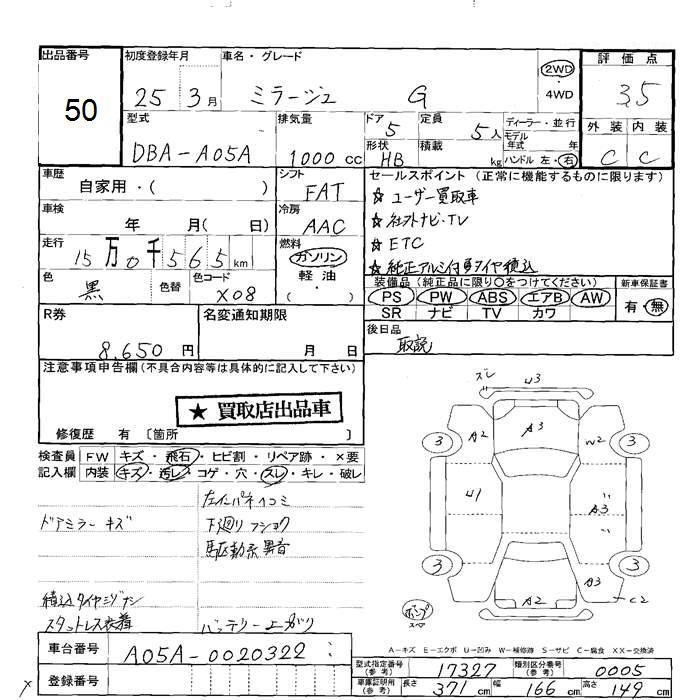 出品番号 初度登録年月 車名・グレード 2WD 評価点
50 25 3月 ミラージュ G ・4WD 3.5
型式 排気量 ドア 定員 ディーラー・並行 外装 内装
DBA-A05A 1000cc 5 5人 モデル年式 年 C C
形状 HB 積載 kg ハンドル 左・右
車歴 シフト セールスポイント(正常に機能するものに限ります)
自家用・( ) FAT ☆ ユーザー買取車
車検 冷房 ☆ 社外ナビ・TV
年 月( 日) AAC ☆ ETC
走行 燃料 ☆ 純正アルミ付夏タイヤ積込
15万0千565km ガソリン 装備品(純正品に限り○をつけてください) 新車保証書
色 色替 色コード 軽油・ PS PW ABS エアB AW 有・無
黒 X08 ( ) SR ナビ TV カワ
R券 名変通知期限 後日品
8,650円 月 日 取説
注意事項申告欄(不具合内容等は具体的に記入して下さい)
★買取店出品車
修復歴 有〔箇所 〕
検査員 FW キズ・飛石・ヒビ割・リペア跡・×要
記入欄 内装 キズ・汚レ・コゲ・穴・スレ・キレ・破レ
左インパネイコミ
ドアミラーキズ 下廻リフショク
駆動系異音
積込タイヤミゾナシ
スタットレス装着 バッテリー上ガリ
ズレ U3
A2 A3 W2
3 3
U1 A3
3 3
A3
A2 C2
A-キズ E-エクボ U-凹み W-補修跡 S-サビ C-腐食 XX-交換済
車台番号 A05A-0020322
型式指定番号(参考) 17327 類別区分番号(参考) 0005
登録番号
車庫証明用(参考) 長さ 371cm 幅 166cm 高さ 149cm